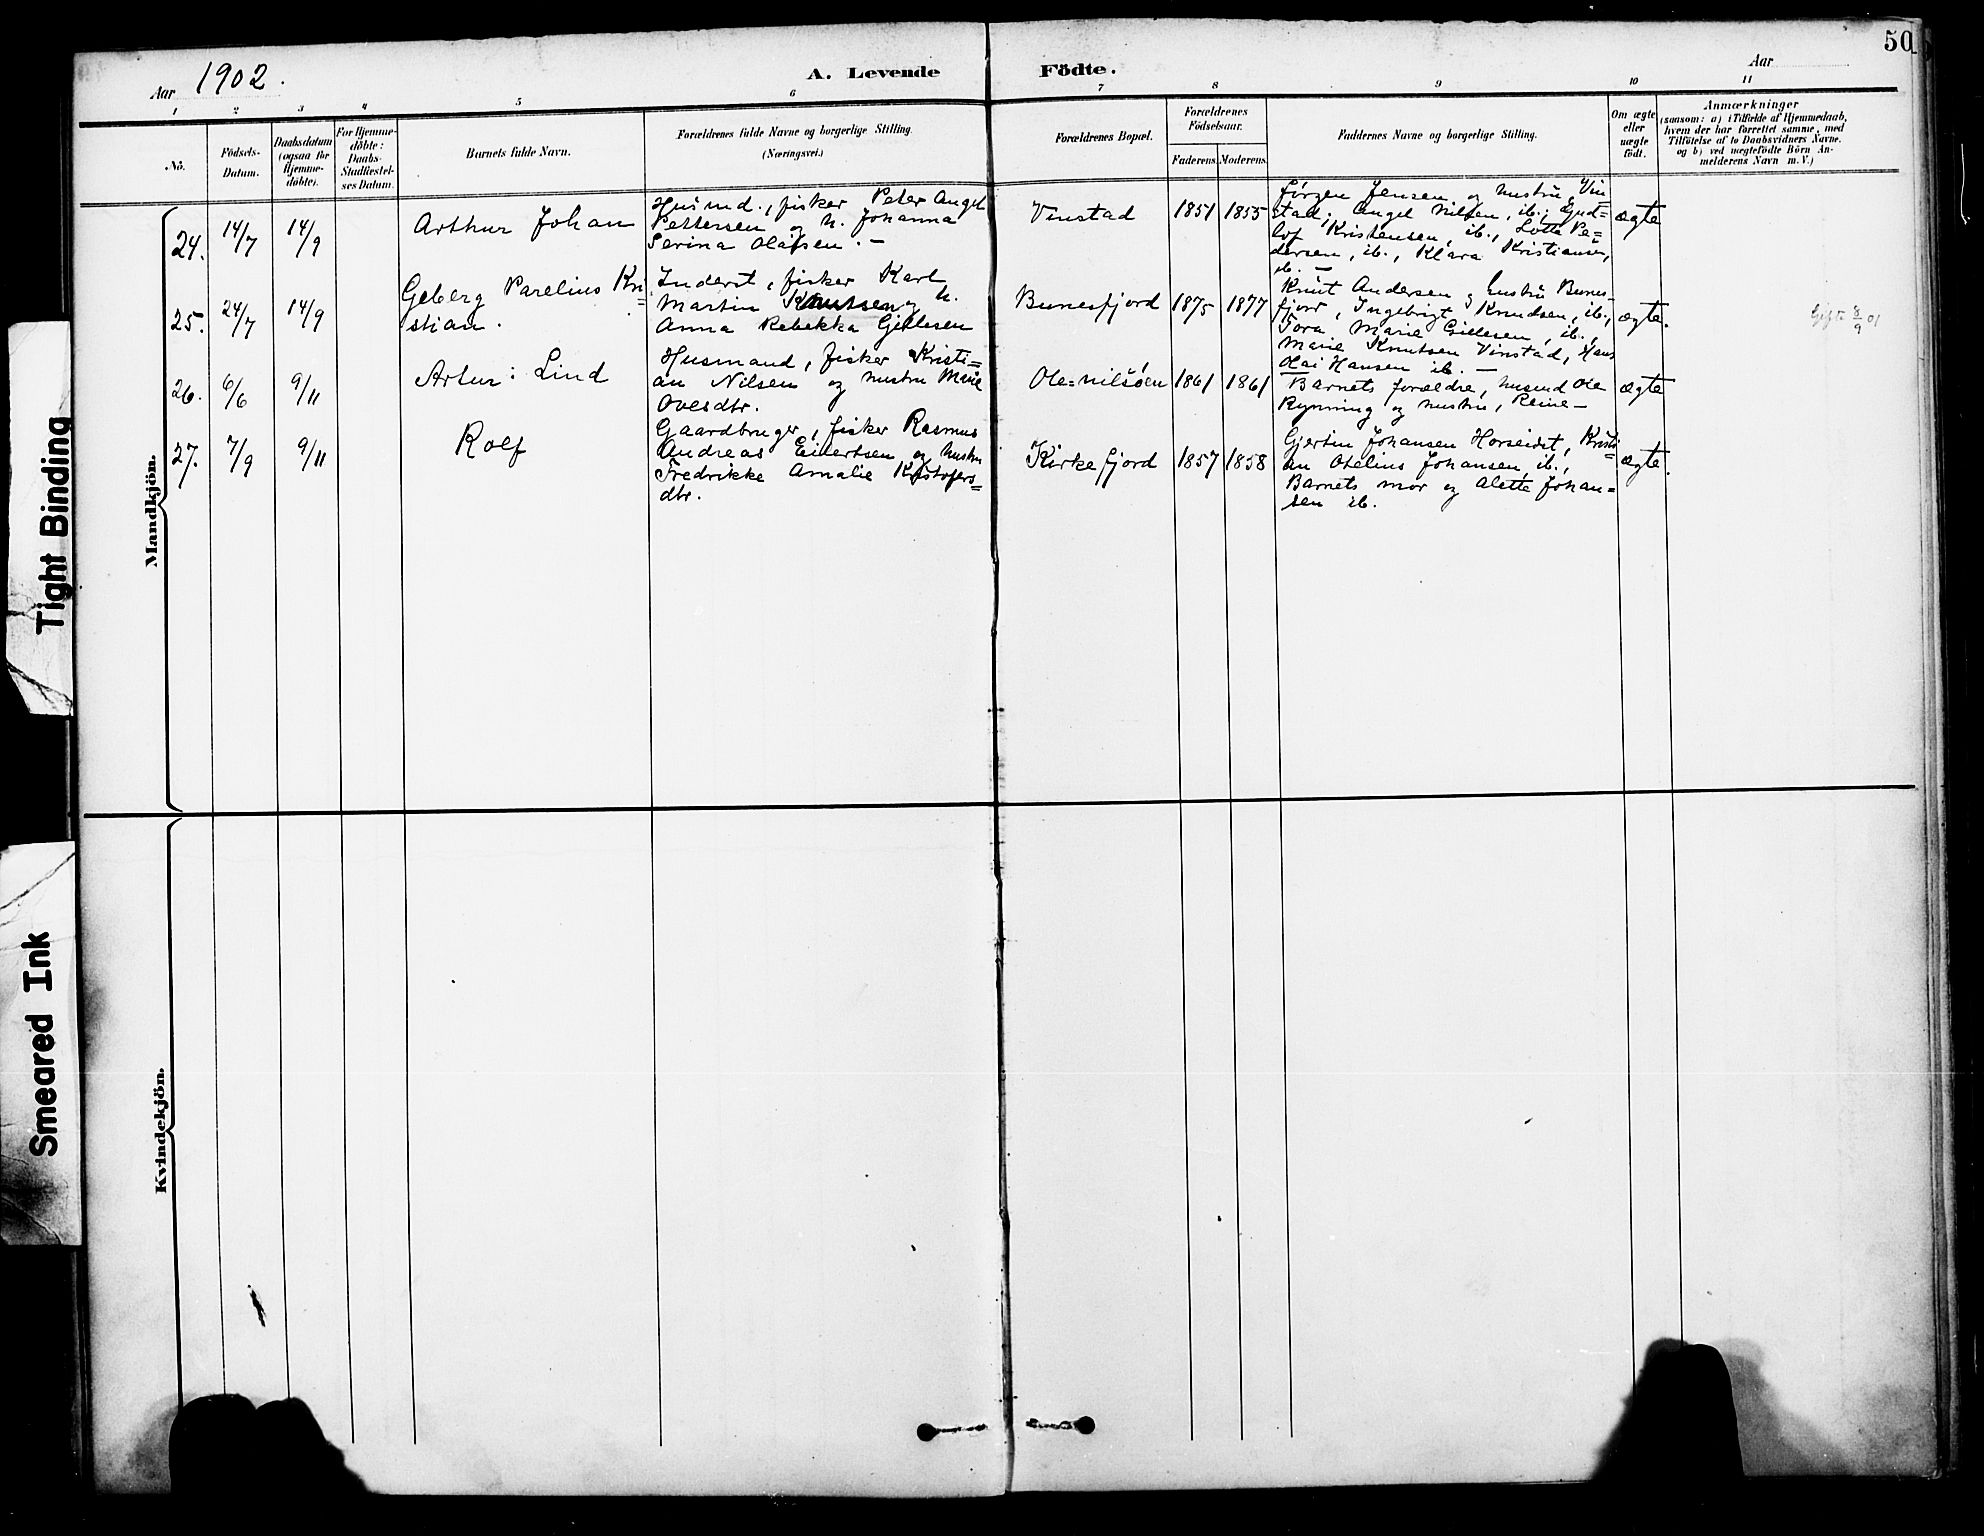 50
Aar 1902.
A. Levende Födte.
Aar
1 2 3 4 5 6 7 8 9 10 11
Nô.
Födsels-
Datum.
Daabsdatum
(ogsaa for
Hjemme-
döbte).
For Hjemme-
döbte:
Daabs-
Stadfæstel-
ses Datum.
Barnets fulde Navn.
Forældrenes fulde Navne og borgerlige Stilling.
(Næringsvei.)
Forældrenes Bopæl.
Forældrenes
Födselsaar.
Faderens. Moderens.
Faddernes Navne og borgerlige Stilling.
Om ægte
eller
uægte
födt.
Anmærkninger
(saasom: a) i Tilfælde af Hjemmedaab,
hvem der har forrettet samme, med
Tilföielse af to Daabsvidners Navne.
og b) ved uægtefödte Börn An-
melderens Navn m. V.)
Mandkjön.
24. 14/7 14/9
Arthur Johan
Husmd., fisker Peter Angel
Pettersen og h. Johanna
Serina Olafsen. –
Vinstad 1851 1855
Jørgen Jensen og hustru Vin
stad, Angel Nilsen, ib., Gud=
lof Kristensen, ib., Lotte Pe=
dersen, ib., Klara Kristiansen,
ib. –
ægte
25. 24/7 14/9
Geberg Parelius Kri=
stian.
Inderst, fisker Karl
Martin Knutsen og h.
Anna Rebekka Gjellesen
Bunesfjord 1875 1877
Knut Andersen og hustru Bunes-
fjord, Ingebrigt Knudsen, ib.,
Tora Marie Gjellesen, ib.,
Marie Knutsen Vinstad, Hans
Olai Hansen ib. –
ægte.
Gift 8/9 01
26. 6/6 9/11
Artur: Lind
Husmand, fisker Kristi=
an Nilsen og hustru Marie
Ovesdtr.
Ole=nilsøen 1861 1861
Barnets forældre, husmd Ole
Rynning og hustru, Reine –
ægte
27. 7/9 9/11
Rolf
Gaardbruger, fisker Rasmus
Andreas Eilertsen og hustru
Fredrikke Amalie Kristofers=
dtr.
Kirkefjord 1857 1858
Gjertin Johansen Horseidet, Kristi=
an Otelius Johansen, ib.,
Barnets mor og Alette Johan=
sen ib.
ægte.
Kvindekjön.
Tight Binding
Smeared Ink